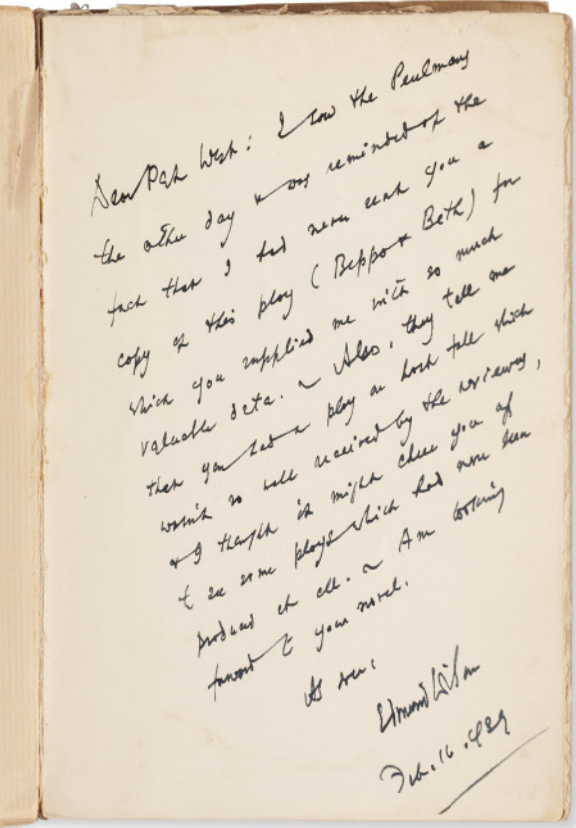 Dear Pep West: I saw the Perelmans
the other day & was reminded of the
fact that I had never sent you a
copy of this play (Beppo & Beth) for
which you supplied me with so much
valuable data. ~ Also, they tell me
that you had a play on last fall which
wasn't so well received by the reviewers,
& I thought it might cheer you up
to see some plays which had never been
produced at all. ~ Am looking
forward to your novel.
As ever,
Edmund Wilson
Feb. 16. 1939